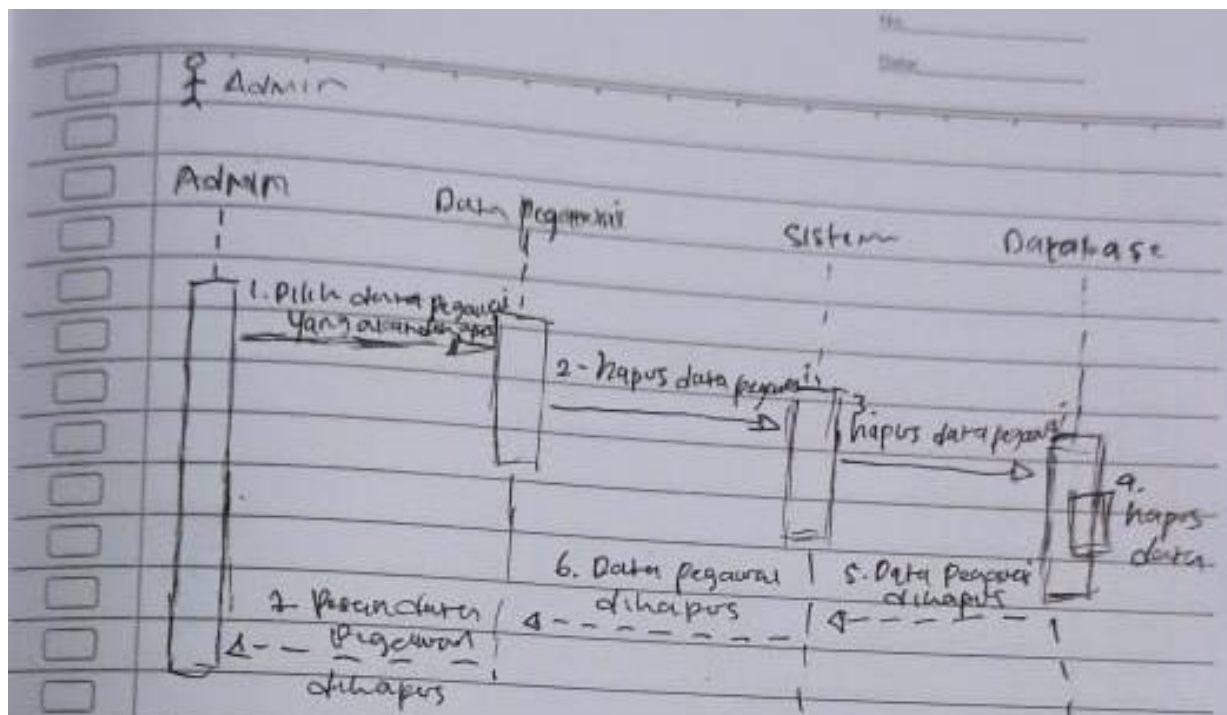 No
Date
Admin
Admin
Data Pegawai
Sistem
Database
1. Pilih data pegawai
yang akan dihapus
2 - hapus data pegawai
3
hapus data pegawai
4.
hapus
data
5. Data Pegawai
dihapus
6. Data pegawai
dihapus
7. Pesan data
Pegawai
dihapus